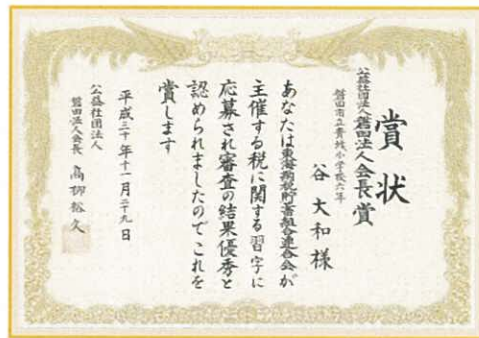 賞状
公益社団法人磐田法人会長賞
磐田市立青城小学校六年
谷 大和様
あなたは東海納税貯蓄組合連合会が
主催する税に関する習字に
応募され審査の結果優秀と
認められましたのでこれを
賞します
平成三十年十一月二十九日
公益社団法人
磐田法人会長 高柳裕久